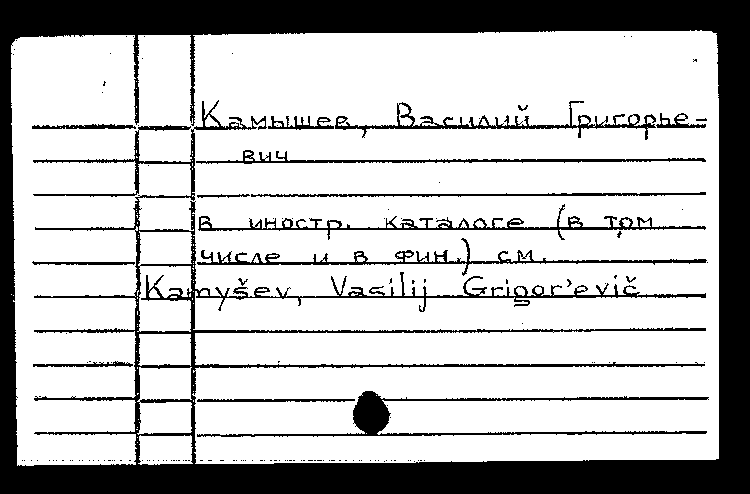 Камышев, Василий Григорье-
вич
в иностр. каталоге (в том
числе и в фин.) см.
Kamyšev, Vasilij Grigor'evič